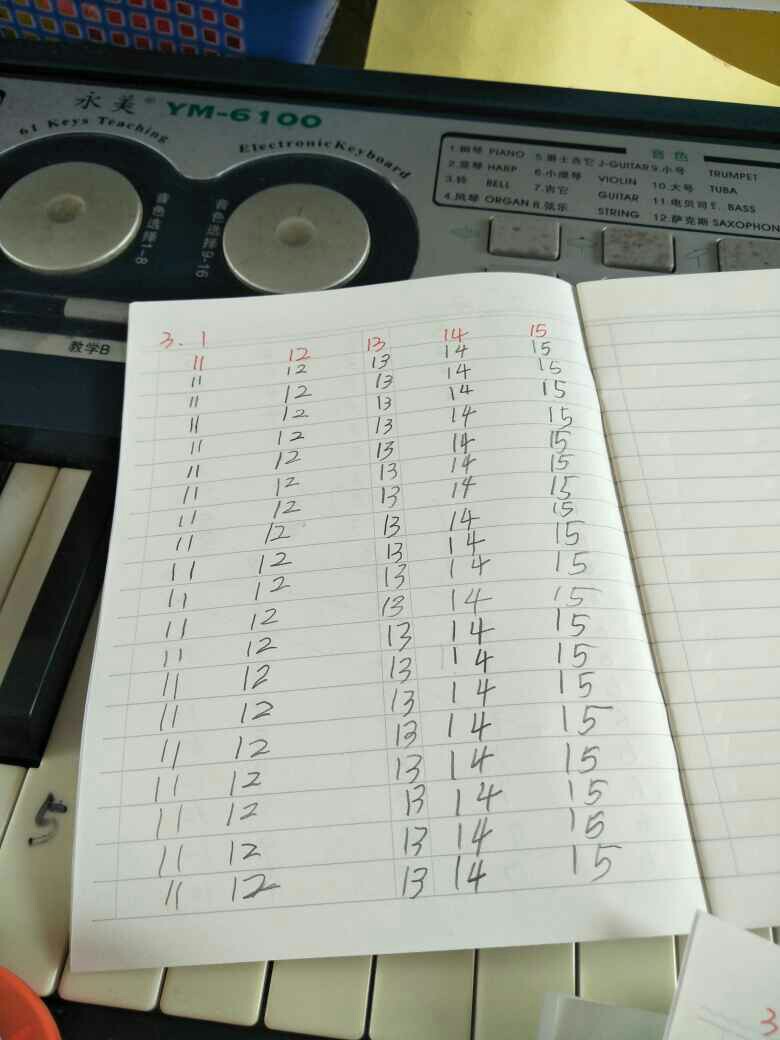 永美® YM-6100
61 Keys Teaching
ElectronicKeyboard
音色选择1-8
音色选择9-16
音色
1.钢琴 PIANO 5.爵士吉它 J-GUITAR 9.小号 TRUMPET
2.竖琴 HARP 6.小提琴 VIOLIN 10.大号 TUBA
3.铃 BELL 7.吉它 GUITAR 11.电贝司 E. BASS
4.风琴 ORGAN 8.弦乐 STRING 12.萨克斯 SAXOPHON
教学B
3.1
11 12 13 14 15
11 12 13 14 15
11 12 13 14 15
11 12 13 14 15
11 12 13 14 15
11 12 13 14 15
11 12 13 14 15
11 12 13 14 15
11 12 13 14 15
11 12 13 14 15
11 12 13 14 15
11 12 13 14 15
11 12 13 14 15
11 12 13 14 15
11 12 13 14 15
11 12 13 14 15
11 12 13 14 15
11 12 13 14 15
11 12 13 14 15
11 12 13 14 15
5
3